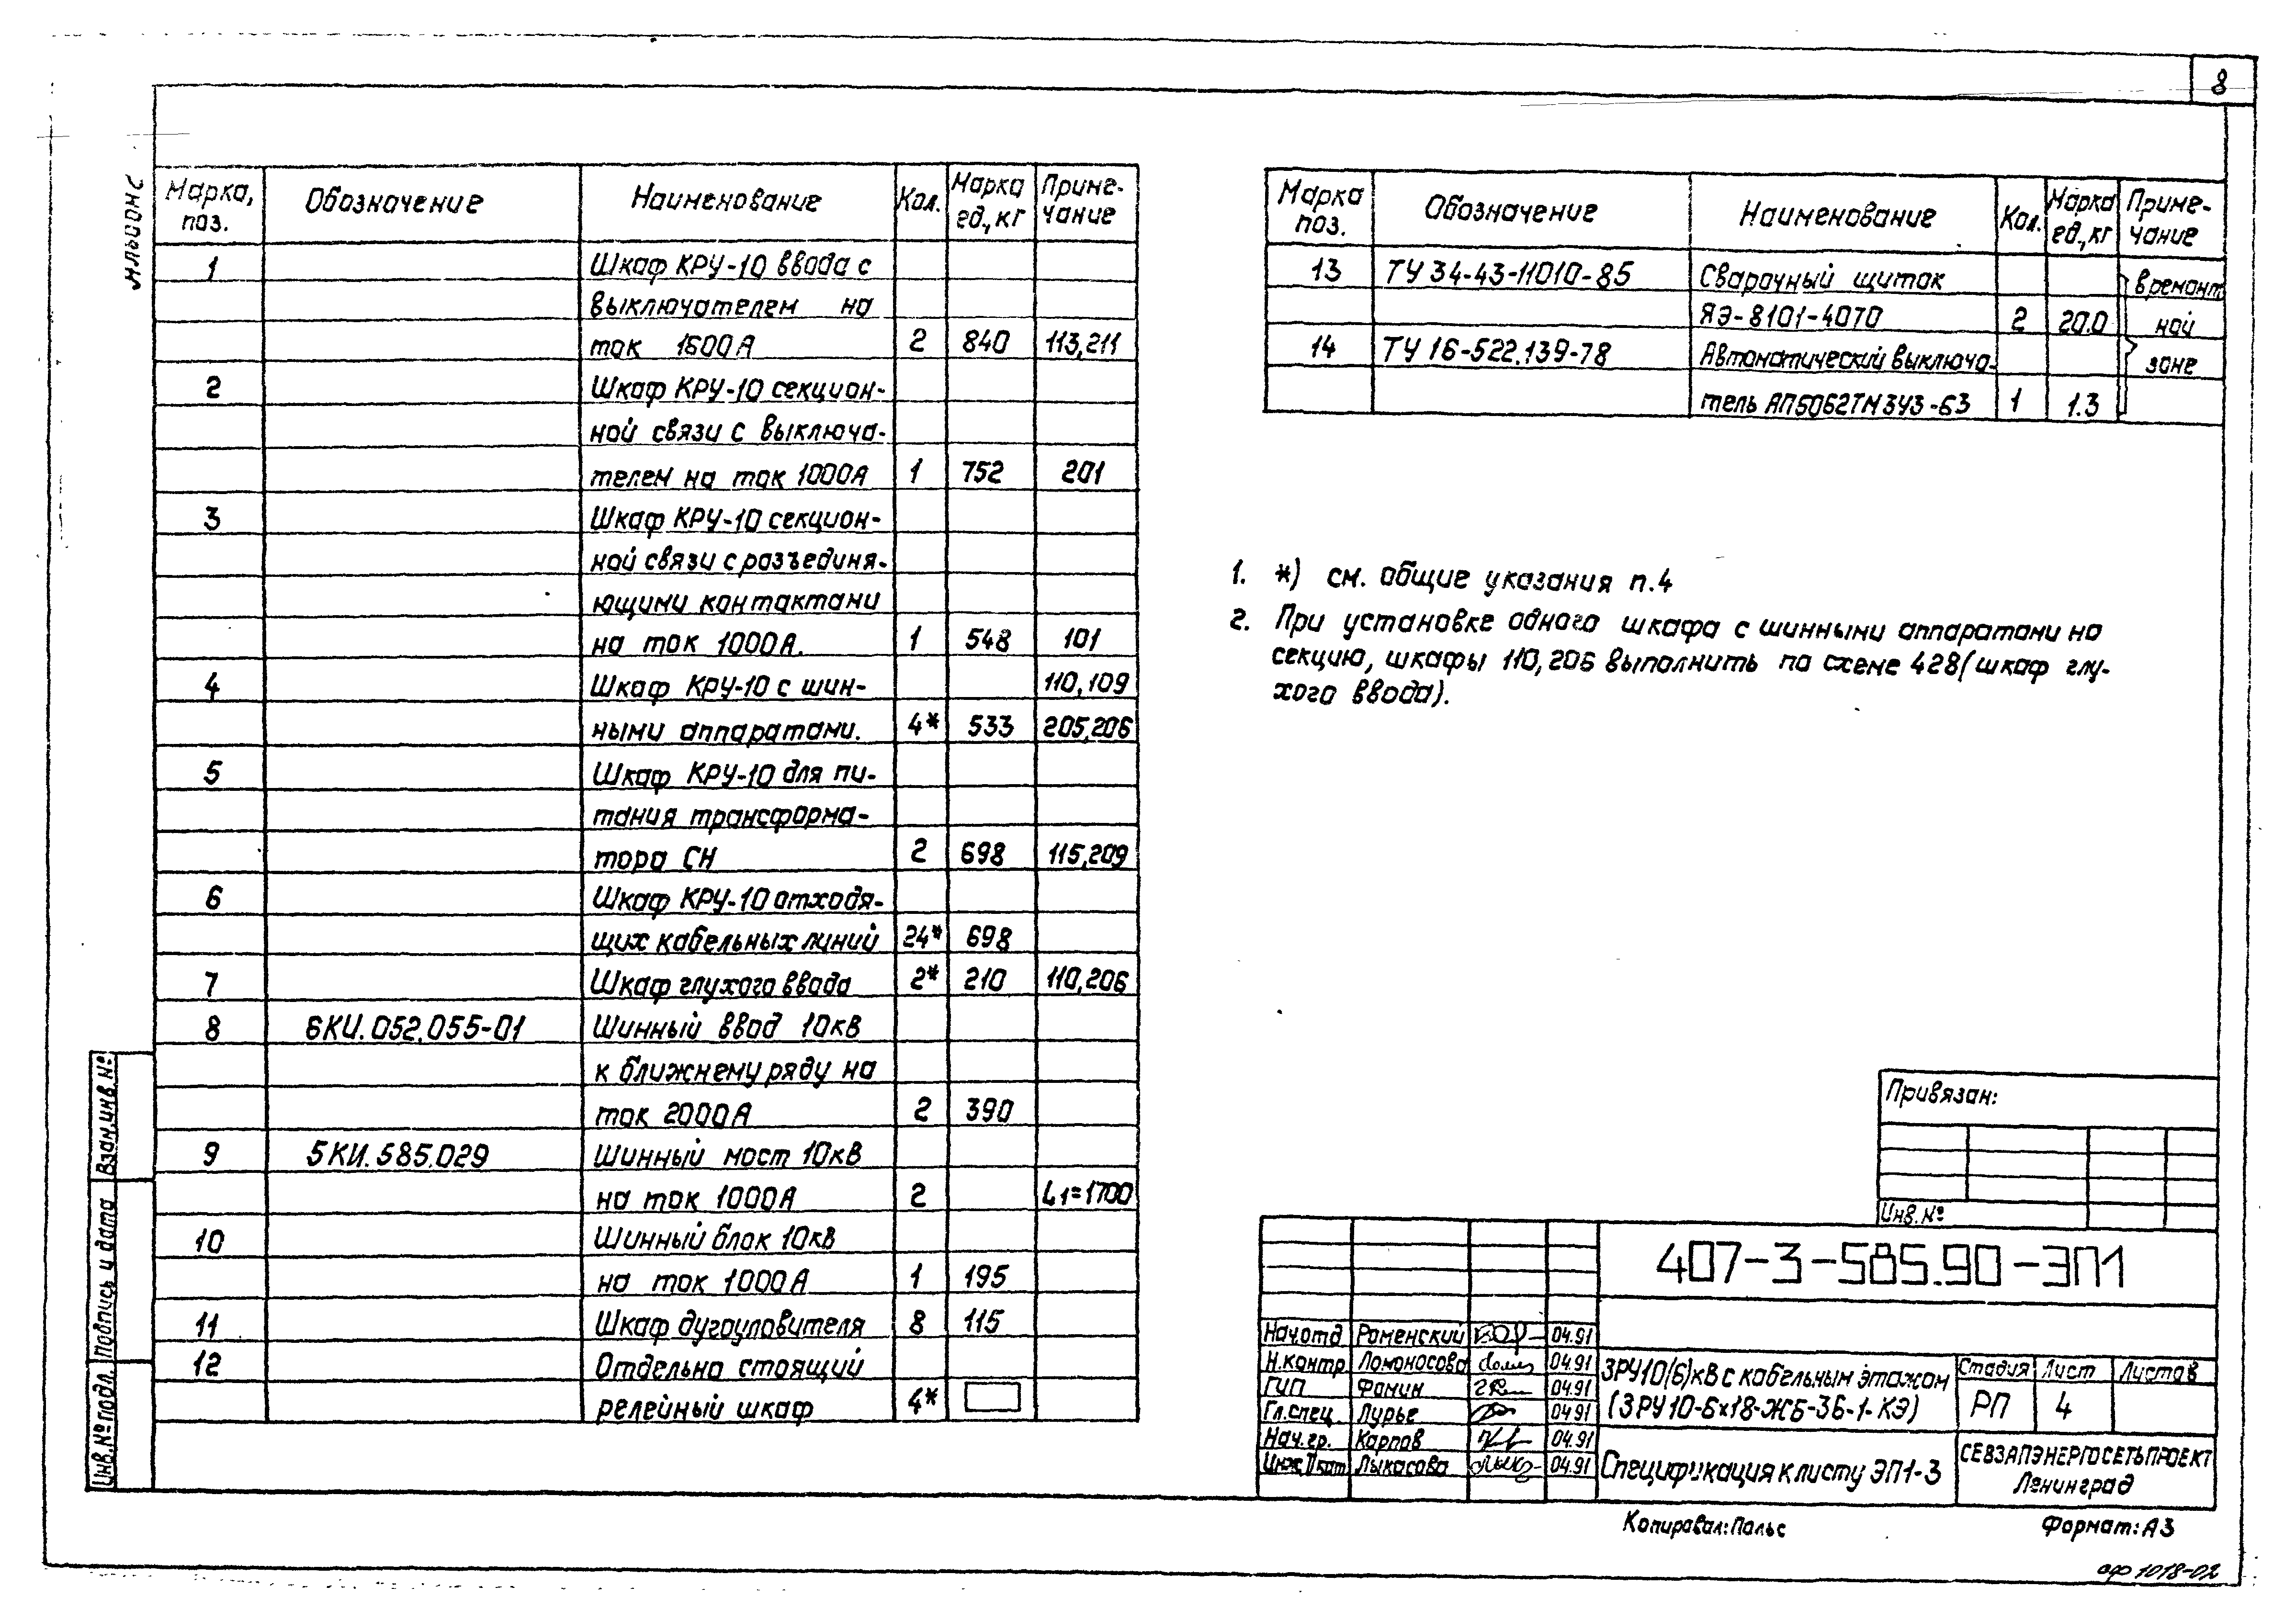 8
Марка, поз. Обозначение Наименование Кол. Марка ед., кг Приме-чание
1 Шкаф КРУ-10 ввода с
выключателем на
ток 1600А 2 840 113,211
2 Шкаф КРУ-10 секцион-
ной связи с выключа-
телем на ток 1000А 1 752 201
3 Шкаф КРУ-10 секцион-
ной связи с разъединя-
ющими контактами
на ток 1000А. 1 548 101
4 Шкаф КРУ-10 с шин- 110,109
ными аппаратами. 4* 533 205,206
5 Шкаф КРУ-10 для пи-
тания трансформа-
тора СН 2 698 115,209
6 Шкаф КРУ-10 отходя-
щих кабельных линий 24* 698
7 Шкаф глухого ввода 2* 210 110,206
8 6КИ.052.055-01 Шинный ввод 10кВ
к ближнему ряду на
ток 2000А 2 390
9 5КИ.585.029 Шинный мост 10кВ
на ток 1000А 2 L1=1700
10 Шинный блок 10кВ
на ток 1000А 1 195
11 Шкаф дугоуловителя 8 115
12 Отдельно стоящий
релейный шкаф 4*
Марка поз. Обозначение Наименование Кол. Марка ед., кг Приме-чание
13 ТУ 34-43-11010-85 Сварочный щиток
ЯЭ-8101-4070 2 20.0
14 ТУ 16-522.139-78 Автоматический выключа-
тель АП50Б2ТМ3У3-63 1 1.3
в ремонт
ной
зоне
1. *) см. общие указания п.4
2. При установке одного шкафа с шинными аппаратами на
секцию, шкафы 110,206 выполнить по схеме 428 (шкаф глу-
хого ввода).
Привязан:
Инв.№
407-3-585.90-ЭП1
Нач.отд Роменский 04.91
Н.контр. Ломоносова 04.91
ГИП Фомин 04.91
Гл.спец. Лурье 04.91
Нач.гр. Карпов 04.91
Инж.IIкат Лыкасова 04.91
ЗРУ10(6)кВ с кабельным этажом
(ЗРУ10-6х18-ЖБ-36-1-КЭ)
Стадия Лист Листов
РП 4
Спецификация к листу ЭП1-3
СЕВЗАПЭНЕРГОСЕТЬПРОЕКТ
Ленинград
Копировал: Пальс
Формат: А3
Инв.№ подл. Подпись и дата Взам.инв.№